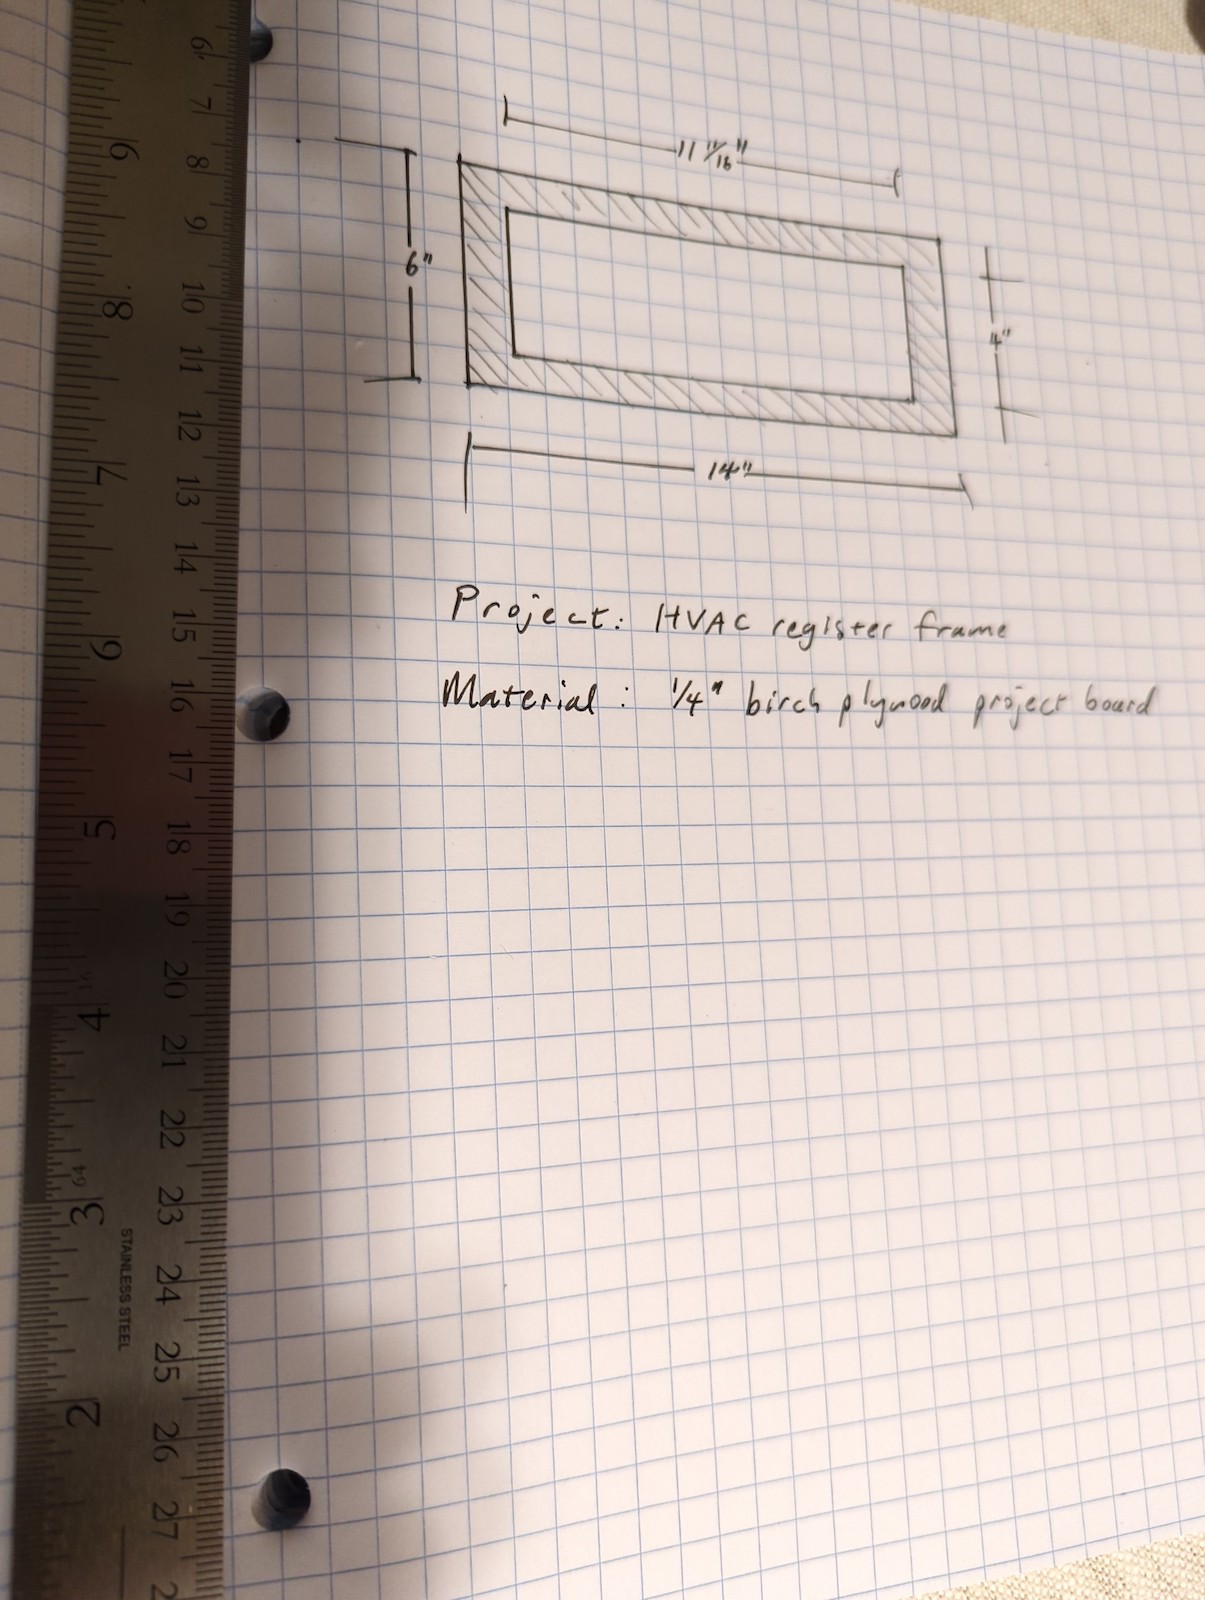 11 11/16"
6"
4"
14"
Project: HVAC register frame
Material: 1/4" birch plywood project board
6
7
8
9
10
11
12
13
14
15
16
17
18
19
20
21
22
23
24
25
26
27
2
9
8
7
6
5
4
3
2
64
STAINLESS STEEL